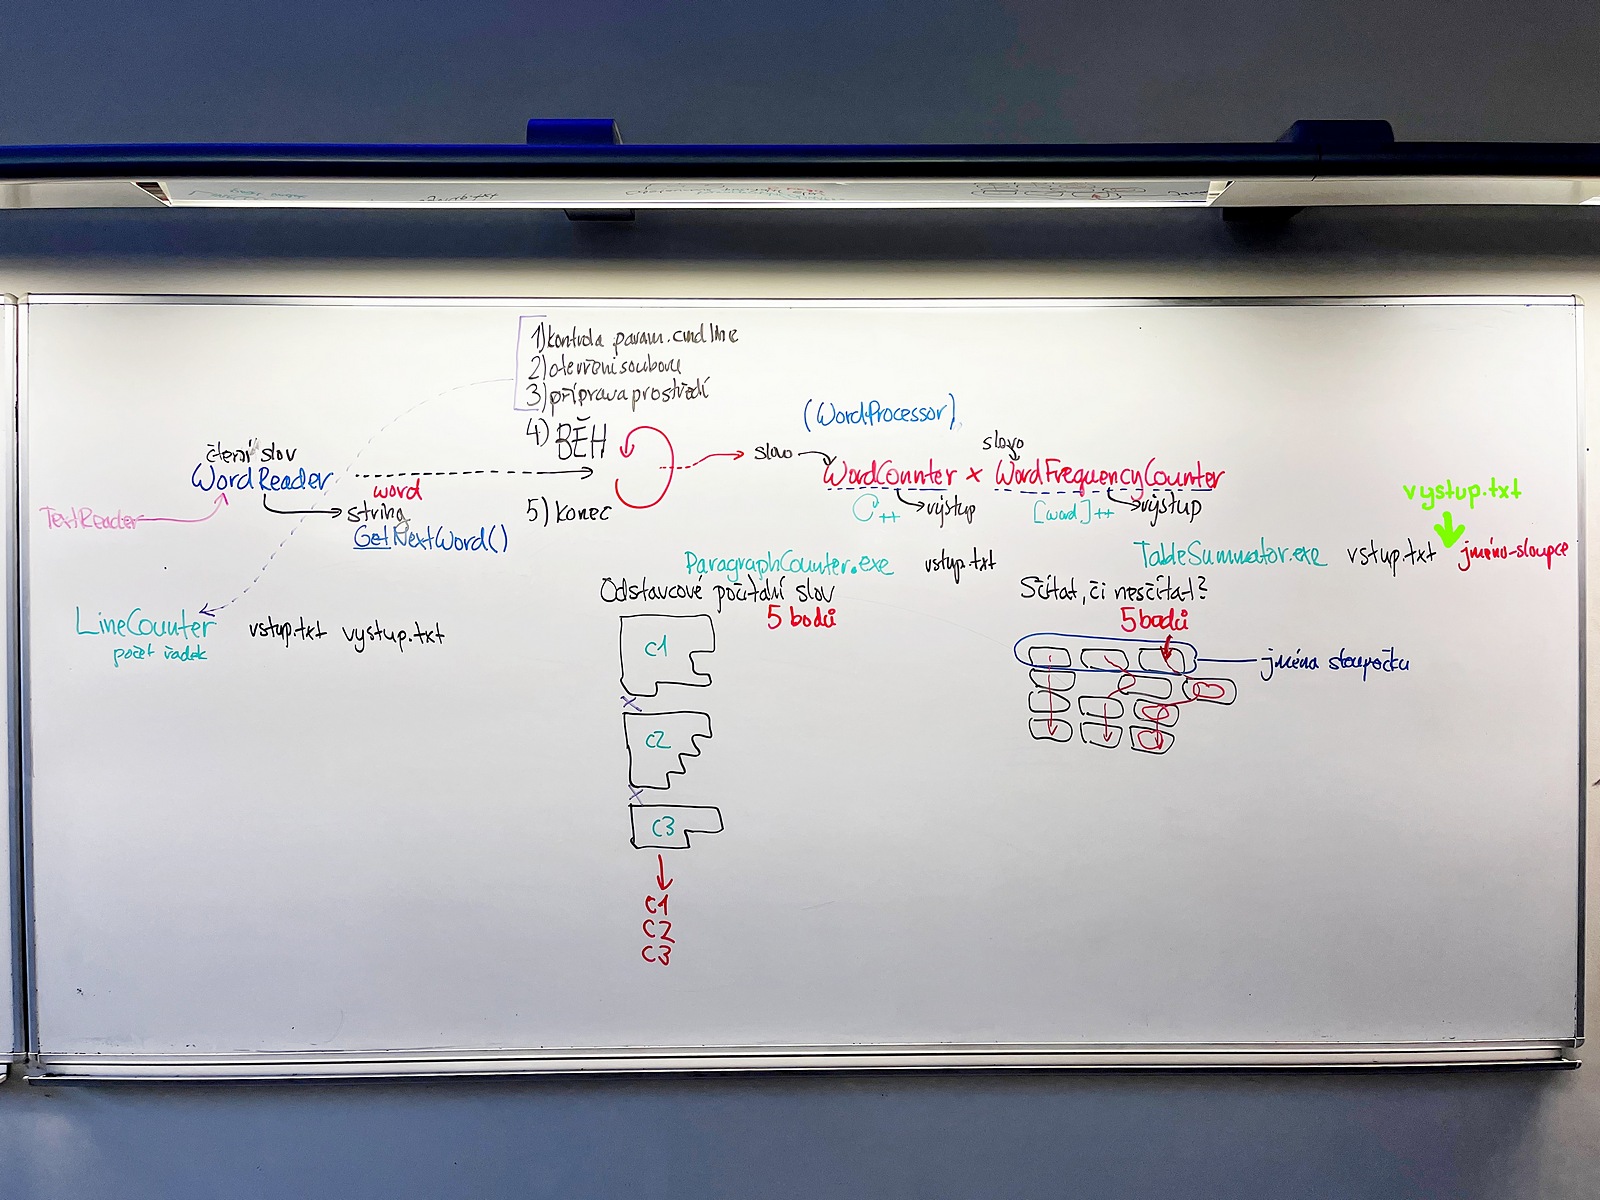 1) kontrola param. cmd line
2) otevření souboru
3) příprava prostředí
4) BĚH
5) konec
čtení slov
WordReader
TextReader
word
string
GetNextWord()
LineCounter vstup.txt vystup.txt
počet řádek
(WordProcessor)
slovo
slovo
WordCounter × WordFrequencyCounter
C++
výstup
[word]++
výstup
ParagraphCounter.exe vstup.txt
Odstavcové počítání slov
5 bodů
C1
C2
C3
C1
C2
C3
vystup.txt
TableSummator.exe vstup.txt jméno-sloupce
Sčítat, či nesčítat?
5 bodů
jména sloupečku